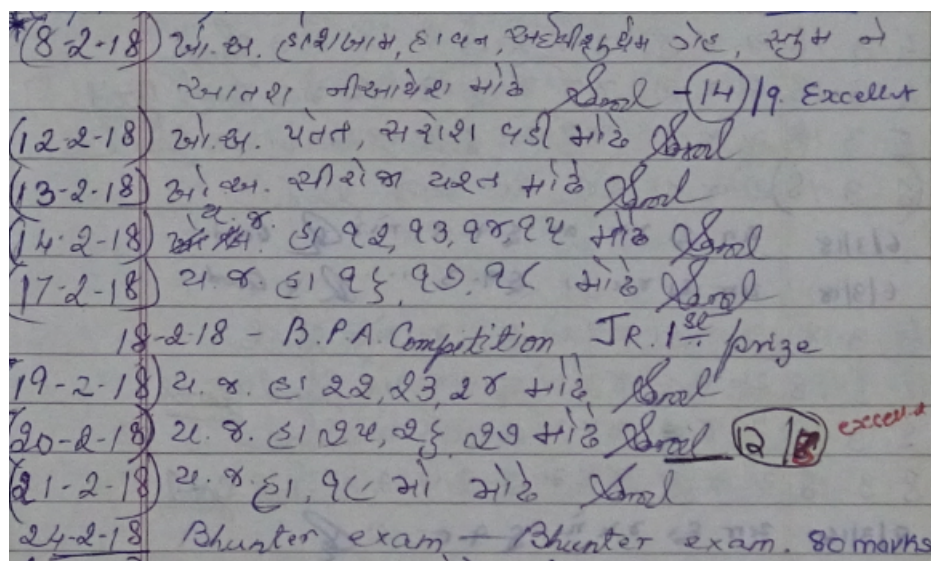 (8-2-18) ખો.અ. હોશબામ, હાવન, ગેહ, ને
આતશ નીઆએશ મોઢે - 14/9. Excellent
(12-2-18) ખો.અ. પતેત, સરોશ વડી મોઢે
(13-2-18) ખો.અ. સીરોજા યશ્ત મોઢે
(14-2-18) ય.જ. હા ૧૨, ૧૩, ૧૪, ૧૫ મોઢે
(17-2-18) ય.જ. હા ૧૬, ૧૭, ૧૮ મોઢે
18-2-18 - B.P.A. Compitition JR. 1st prize
(19-2-18) ય.જ. હા ૨૨, ૨૩, ૨૪ મોઢે
(20-2-18) ય.જ. હા ૨૫, ૨૬, ૨૭ મોઢે 12/8 excellent
(21-2-18) ય.જ. હા, ૧૮ મો મોઢે
24-2-18 Bhunter exam - Bhunter exam. 80 marks